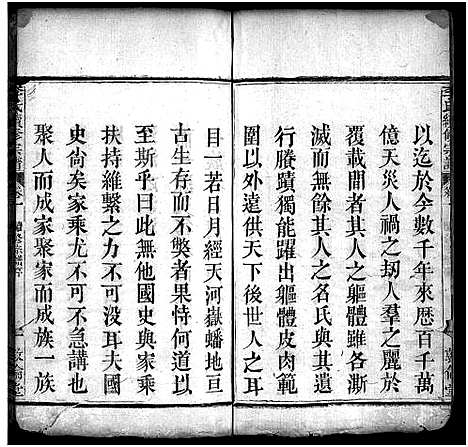 以迄於今數千年來歷百千萬
億天災人禍之刼人羣之麗於
覆載間者其人之軀體澌焉盡
滅而無餘其人之名氏與其清
行賸蹟獨能躍出軀體皮肉範
圍以外遠供天下後世人之耳
目一若日月經天河嶽蟠地亘
古生存而不斃者果恃何術以
至斯乎曰此無他國史與家乘
扶持維繫之力不可沒耳夫國
史尚矣家乘尤不可不急講也
聚人而成家聚家而成族一族
李氏續修宗譜
卷一
敦倫堂